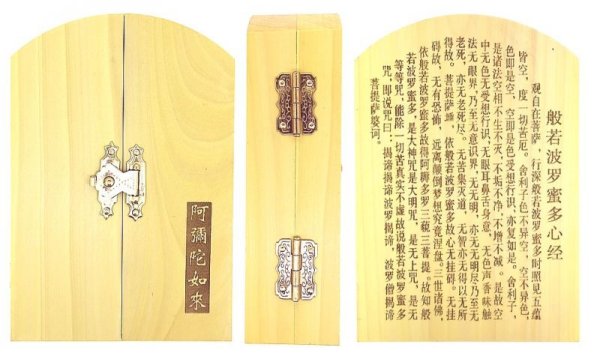 阿彌陀如來
般若波罗蜜多心经
观自在菩萨，行深般若波罗蜜多时照见五蕴
皆空，度一切苦厄。舍利子色不异空，空不异色，
色即是空，空即是色受想行识，亦复如是。舍利子，
是诸法空相不生不灭，不垢不净，不增不减。是故空
中无色无受想行识，无眼耳鼻舌身意，无色声香味触
法无眼界，乃至无意识界，无无明，亦无无明尽乃至无
老死，亦无老死尽。无苦集灭道，无智亦无得以无所
得故。菩提萨埵，依般若波罗蜜多故心无挂碍。无挂
碍故，无有恐怖，远离颠倒梦想究竟涅盘。三世诸佛，
依般若波罗蜜多故得阿耨多罗三藐三菩提。故知般
若波罗蜜多，是大神咒是大明咒，是无上咒，是无
等等咒，能除一切苦真实不虚故说般若波罗蜜多
咒，即说咒曰：揭谛揭谛波罗揭谛，波罗僧揭谛
菩提萨婆诃。